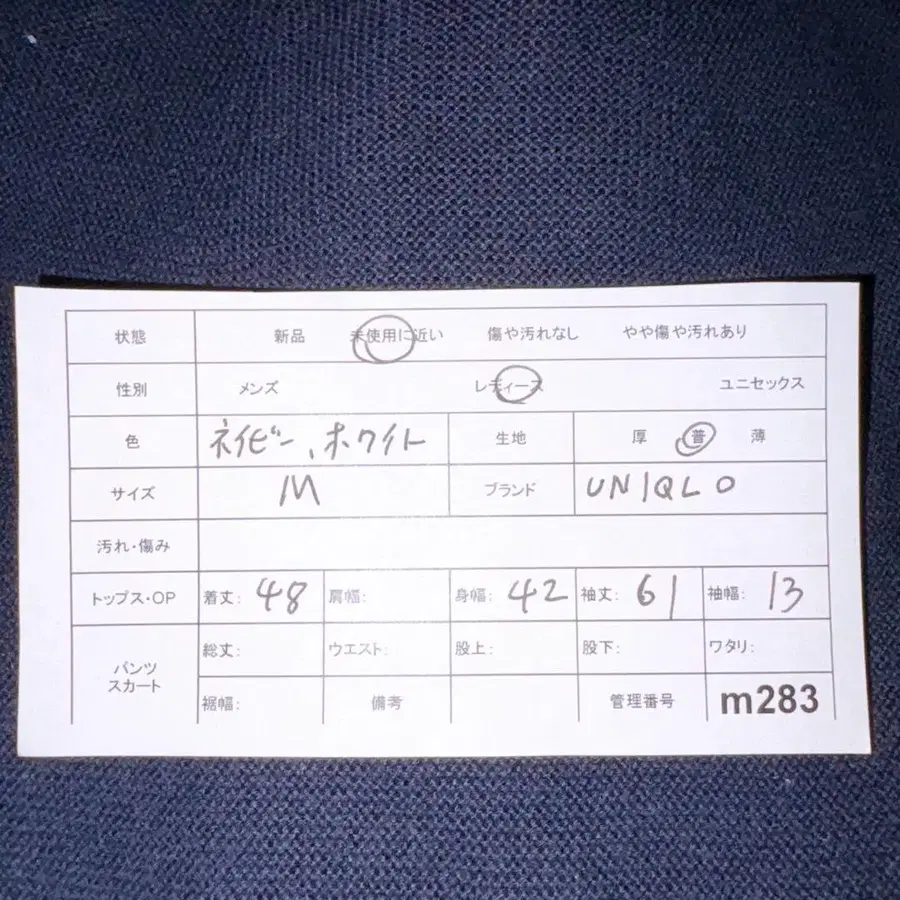 状態 新品 未使用に近い 傷や汚れなし やや傷や汚れあり
性別 メンズ レディース ユニセックス
色 ネイビー、ホワイト 生地 厚 普 薄
サイズ M ブランド UNIQLO
汚れ・傷み
トップス・OP 着丈: 48 肩幅: 身幅: 42 袖丈: 61 袖幅: 13
パンツ スカート 総丈: ウエスト: 股上: 股下: ワタリ:
裾幅: 備考 管理番号 m283